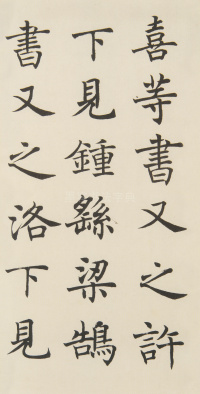 喜等書又之許
下見鍾繇梁鵠
書又之洛下見